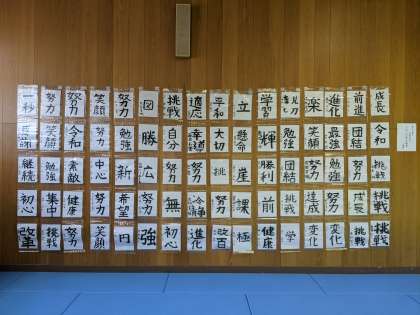 一秒 努力 努力 笑顔 努力 図 挑戦 適応 平和 立 学習 楽 進化 前進 成長
笑顔 令和 努力 勉強 勝 自分 幸運 大切 懸命 輝 勉強 笑顔 最強 団結 令和
継続 勉強 素敵 中心 新 広 努力 努力 挑 崖 勝利 団結 努力 勉強 努力 挑戦
初心 集中 健康 努力 希望 努力 無 冷静 努力 課 前 挑戦 達成 努力 成長 挑戦
改革 挑戦 努力 笑顔 円 強 初心 進化 改百 極 健康 学 変化 変化 挑戦 挑戦